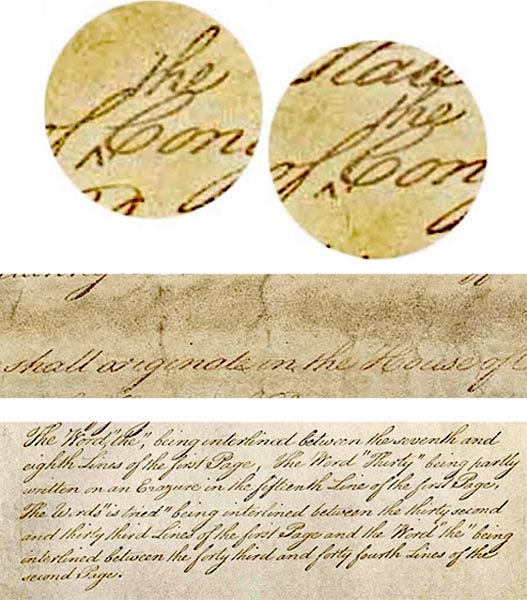 the
of Cong
the
of Con
shall originate in the House of
The Word, "the", being interlined between the seventh and
eighth Lines of the first Page, The Word "Thirty" being partly
written on an Erazure in the fifteenth Line of the first Page,
The Words "is tried" being interlined between the thirty second
and thirty third Lines of the first Page and the Word "the" being
interlined between the forty third and forty fourth Lines of the
second Page.